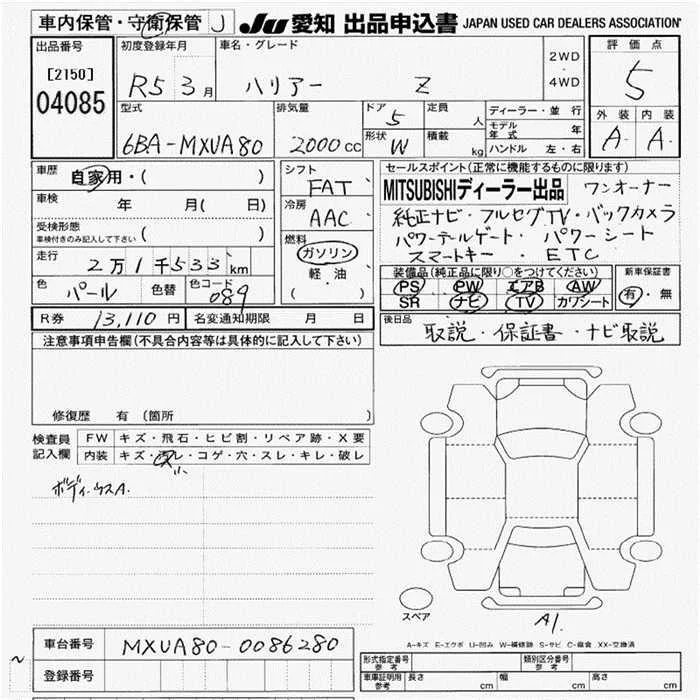 車内保管・守衛保管 J
JU 愛知 出品申込書 JAPAN USED CAR DEALERS ASSOCIATION
出品番号
[2150]
04085
初度登録年月
R5 3月
車名・グレード
ハリアー Z
2WD
・
4WD
評価点
5
外装 内装
A. A.
型式
6BA-MXUA80
排気量
2000 CC
ドア
5
形状
W
定員
人
積載
kg
ディーラー・並行
モデル年式 年
ハンドル 左・右
車歴
自家用・( )
車検
年 月( 日)
受検形態
車検付きのみ記入して下さい ( )
走行
2万1千533 km
色
パール
色替
色コード
089
シフト
FAT
冷房
AAC
燃料
ガソリン
軽油
( )
セールスポイント(正常に機能するものに限ります)
MITSUBISHIディーラー出品 ワンオーナー
純正ナビ・フルセグTV・バックカメラ
パワーテールゲート・パワーシート
スマートキー・ETC
装備品(純正品に限り○をつけてください)
PS PW エアB AW
SR ナビ TV カワシート
新車保証書
有・無
R券 13,110円 名変通知期限 月 日
後日品
取説・保証書・ナビ取説
注意事項申告欄(不具合内容等は具体的に記入して下さい)
修復歴 有(箇所 )
検査員
記入欄
FW キズ・飛石・ヒビ割・リペア跡・X要
内装 キズ・汚レ・コゲ・穴・スレ・キレ・破レ
ボディ・ウスA.
スペア
A1.
A-キズ E-エクボ U-凹み W-補修跡 S-サビ C-腐食 XX-交換済
車台番号 MXUA80-0086280
登録番号
~
形式指定番号
参考
類別区分番号
参考
車庫証明用
参考
長さ cm 幅 cm 高さ cm